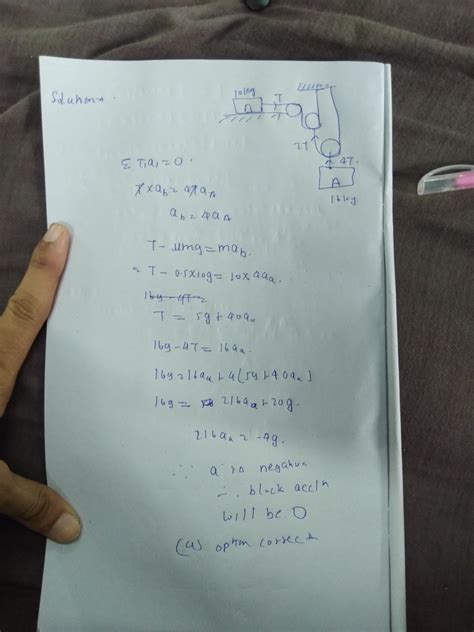 Solution.
10kg
B
T
2T
4T
A
16kg
Σ T,a,=0.
T×ab=4Ta
ab=4aA
T- μmg=mab.
T- 0.5×10g=10×4aa.
16g-4T=
T= 5g+40aa
16g-4T=16aa.
16g=16aa+4[5g+40aa]
16g= 216aa+20g.
216aa=-4g.
∵ a is negative
∴ block accln
will be 0
(a) option correct